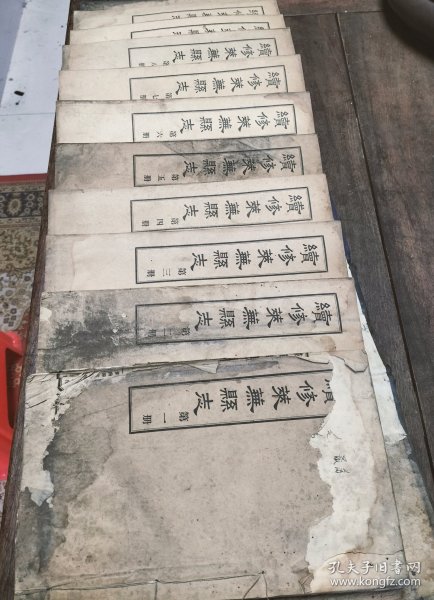 續修萊蕪縣志
續修萊蕪縣志 第七册
續修萊蕪縣志 第六册
續修萊蕪縣志 第五册
續修萊蕪縣志 第四册
續修萊蕪縣志 第三册
續修萊蕪縣志 第二册
續修萊蕪縣志 第一册
孔夫子旧书网
www.kongfz.com